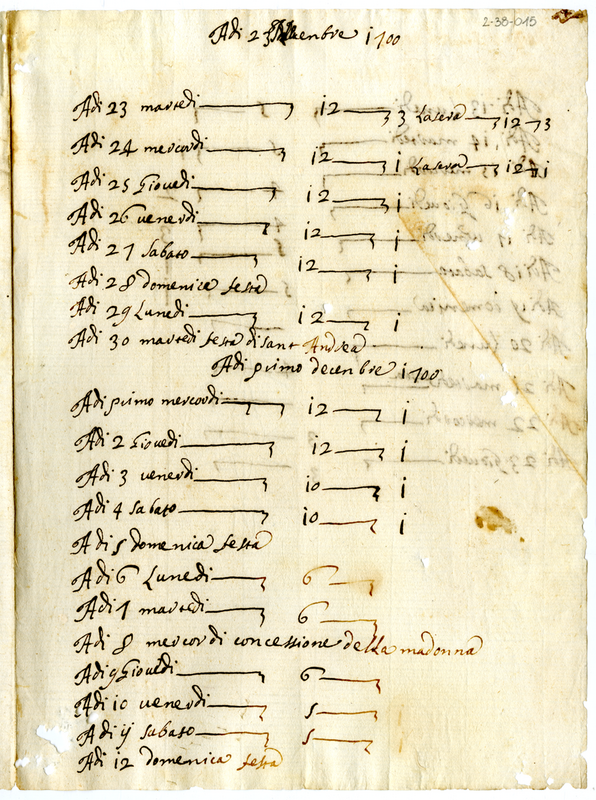 2-38-015
Adi 23 novenbre i700
Adi 23 martedi i2 3 La sera i2 3
Adi 24 mercordi i2 i La sera i2 i
Adi 25 Giovedi i2 i
Adi 26 venerdi i2 i
Adi 27 sabato i2 i
Adi 28 domenica festa
Adi 29 Lunedi i2 i
Adi 30 martedi festa di sant Andrea
Adi primo decenbre i700
Adi primo mercordi i2 i
Adi 2 Giovedi i2 i
Adi 3 venerdi i0 i
Adi 4 sabato i0 i
Adi 5 domenica festa
Adi 6 Lunedi 6
Adi 7 martedi 6
Adi 8 mercordi concessione della madonna
Adi 9 Giovedi 6
Adi i0 venerdi 5
Adi ij sabato 5
Adi i2 domenica festa